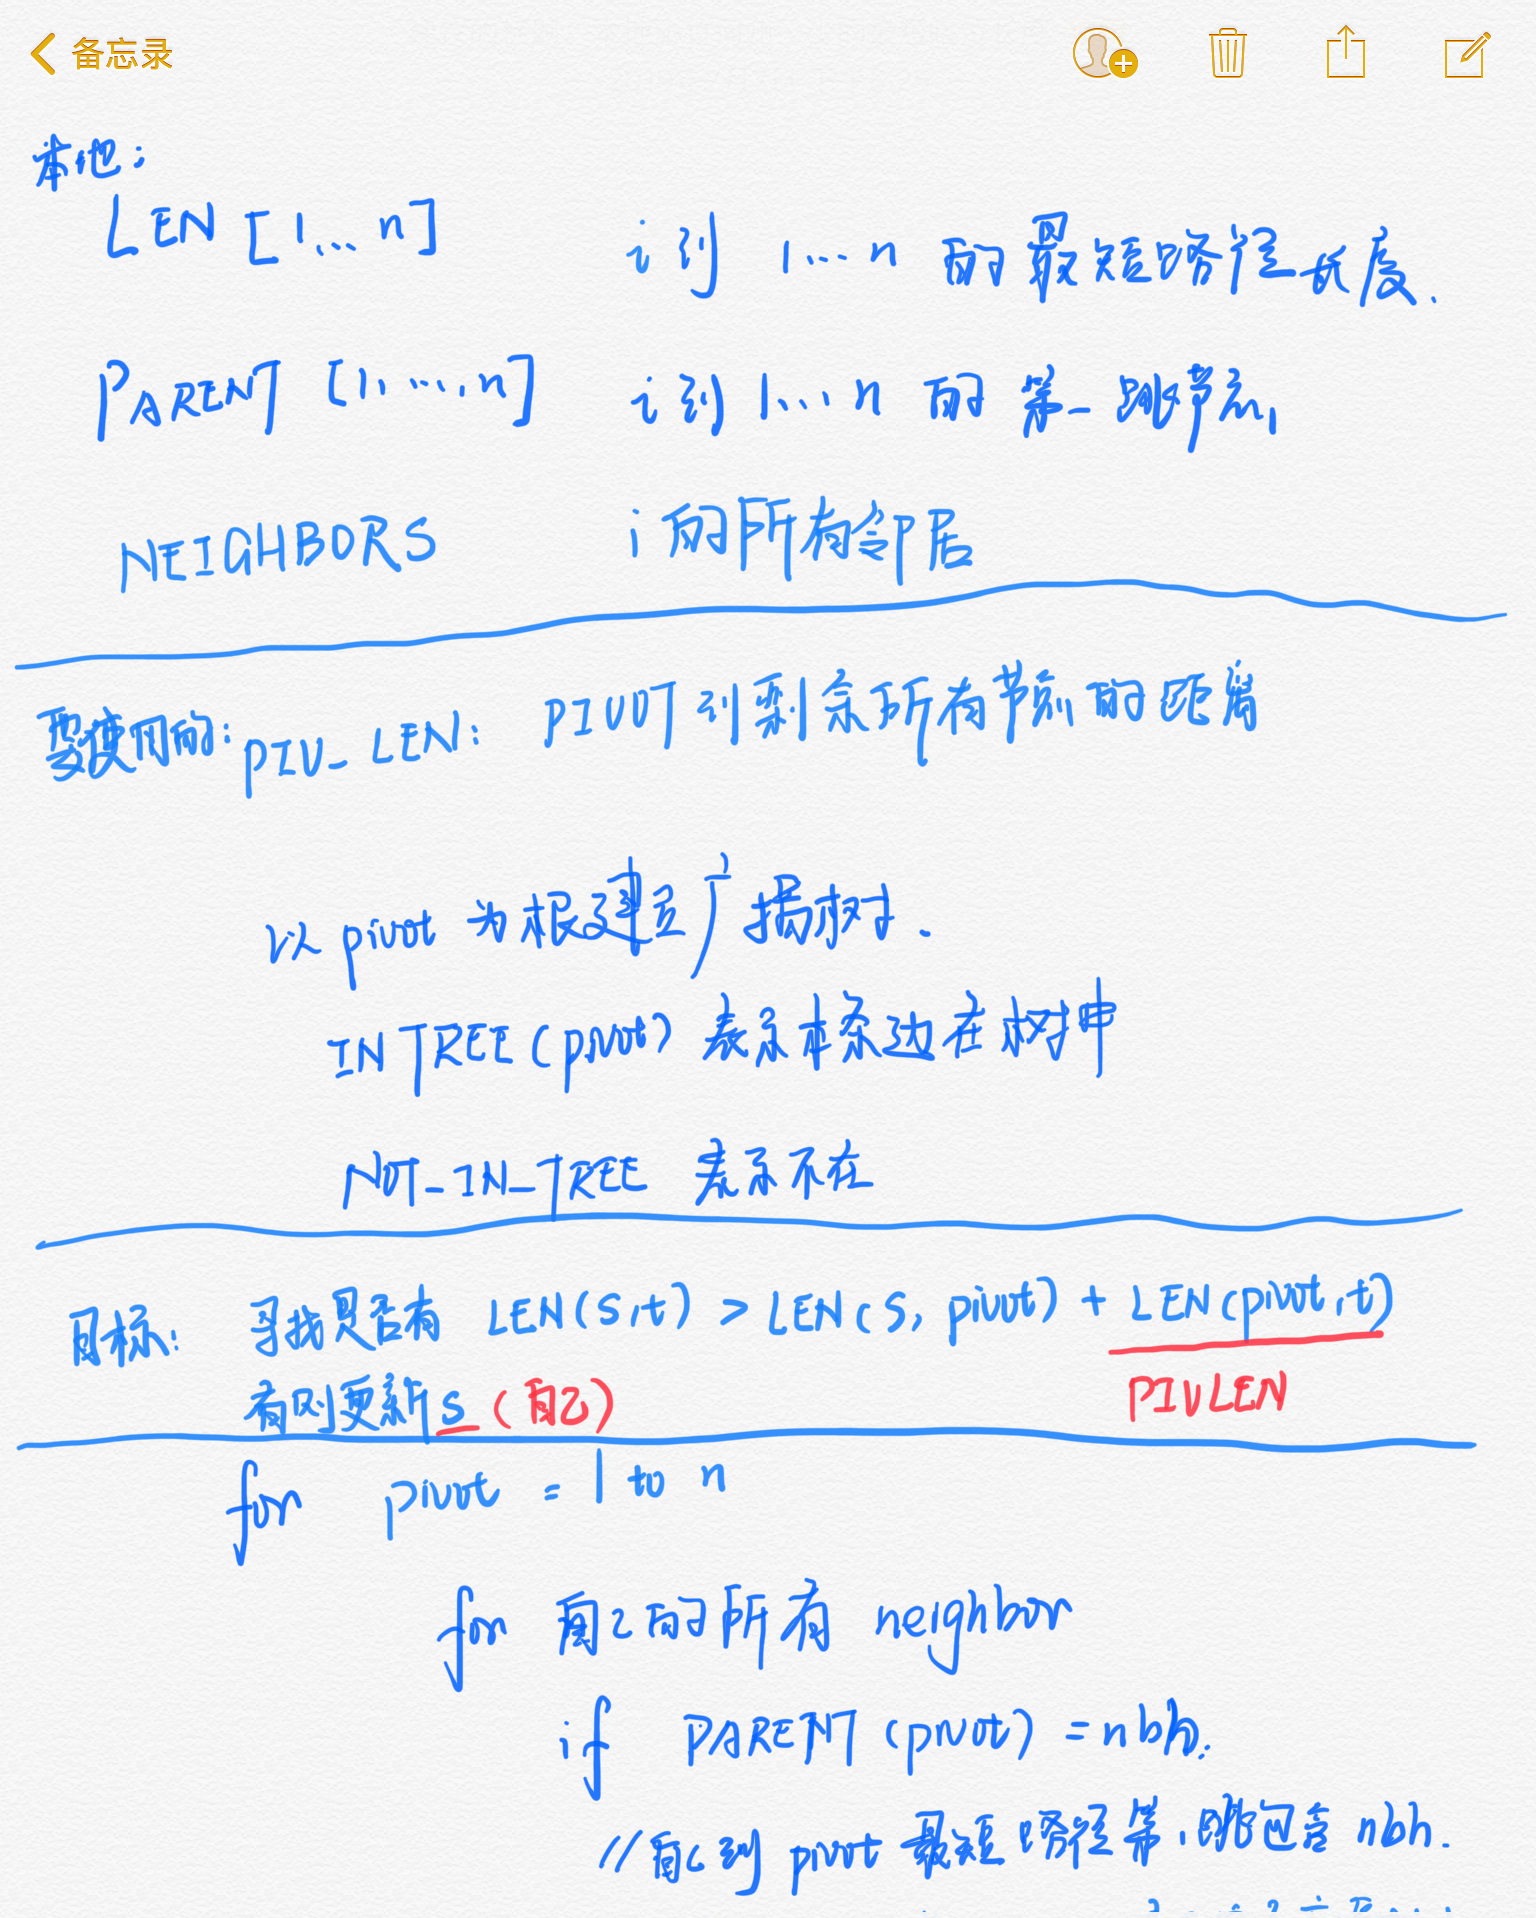 备忘录
本地:
LEN [1... n] i 到 1... n 的最短路径长度.
PARENT [1, ..., n] i 到 1... n 的 第一跳节点,
NEIGHBORS i 的所有邻居
要使用的: PIV_LEN: PIVOT 到剩余所有节点的距离
以 pivot 为根建立广播树.
IN TREE (pivot) 表示本条边在树中
NOT_IN_TREE 表示不在
目标: 寻找是否有 LEN(s,t) > LEN(s, pivot) + LEN(pivot,t)
有则更新 s (自己) PIVLEN
for pivot = 1 to n
for 自己的所有 neighbor
if PARENT (pivot) = nbh.
// 自己到 pivot 最短路径第一跳包含 nbh.